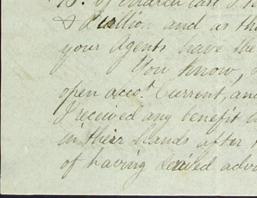 of March last I h
& Dallior and as th
your Agents have the
You know,
open accot. Current, and
I received any benefit o
in their hands after
of having derived adv